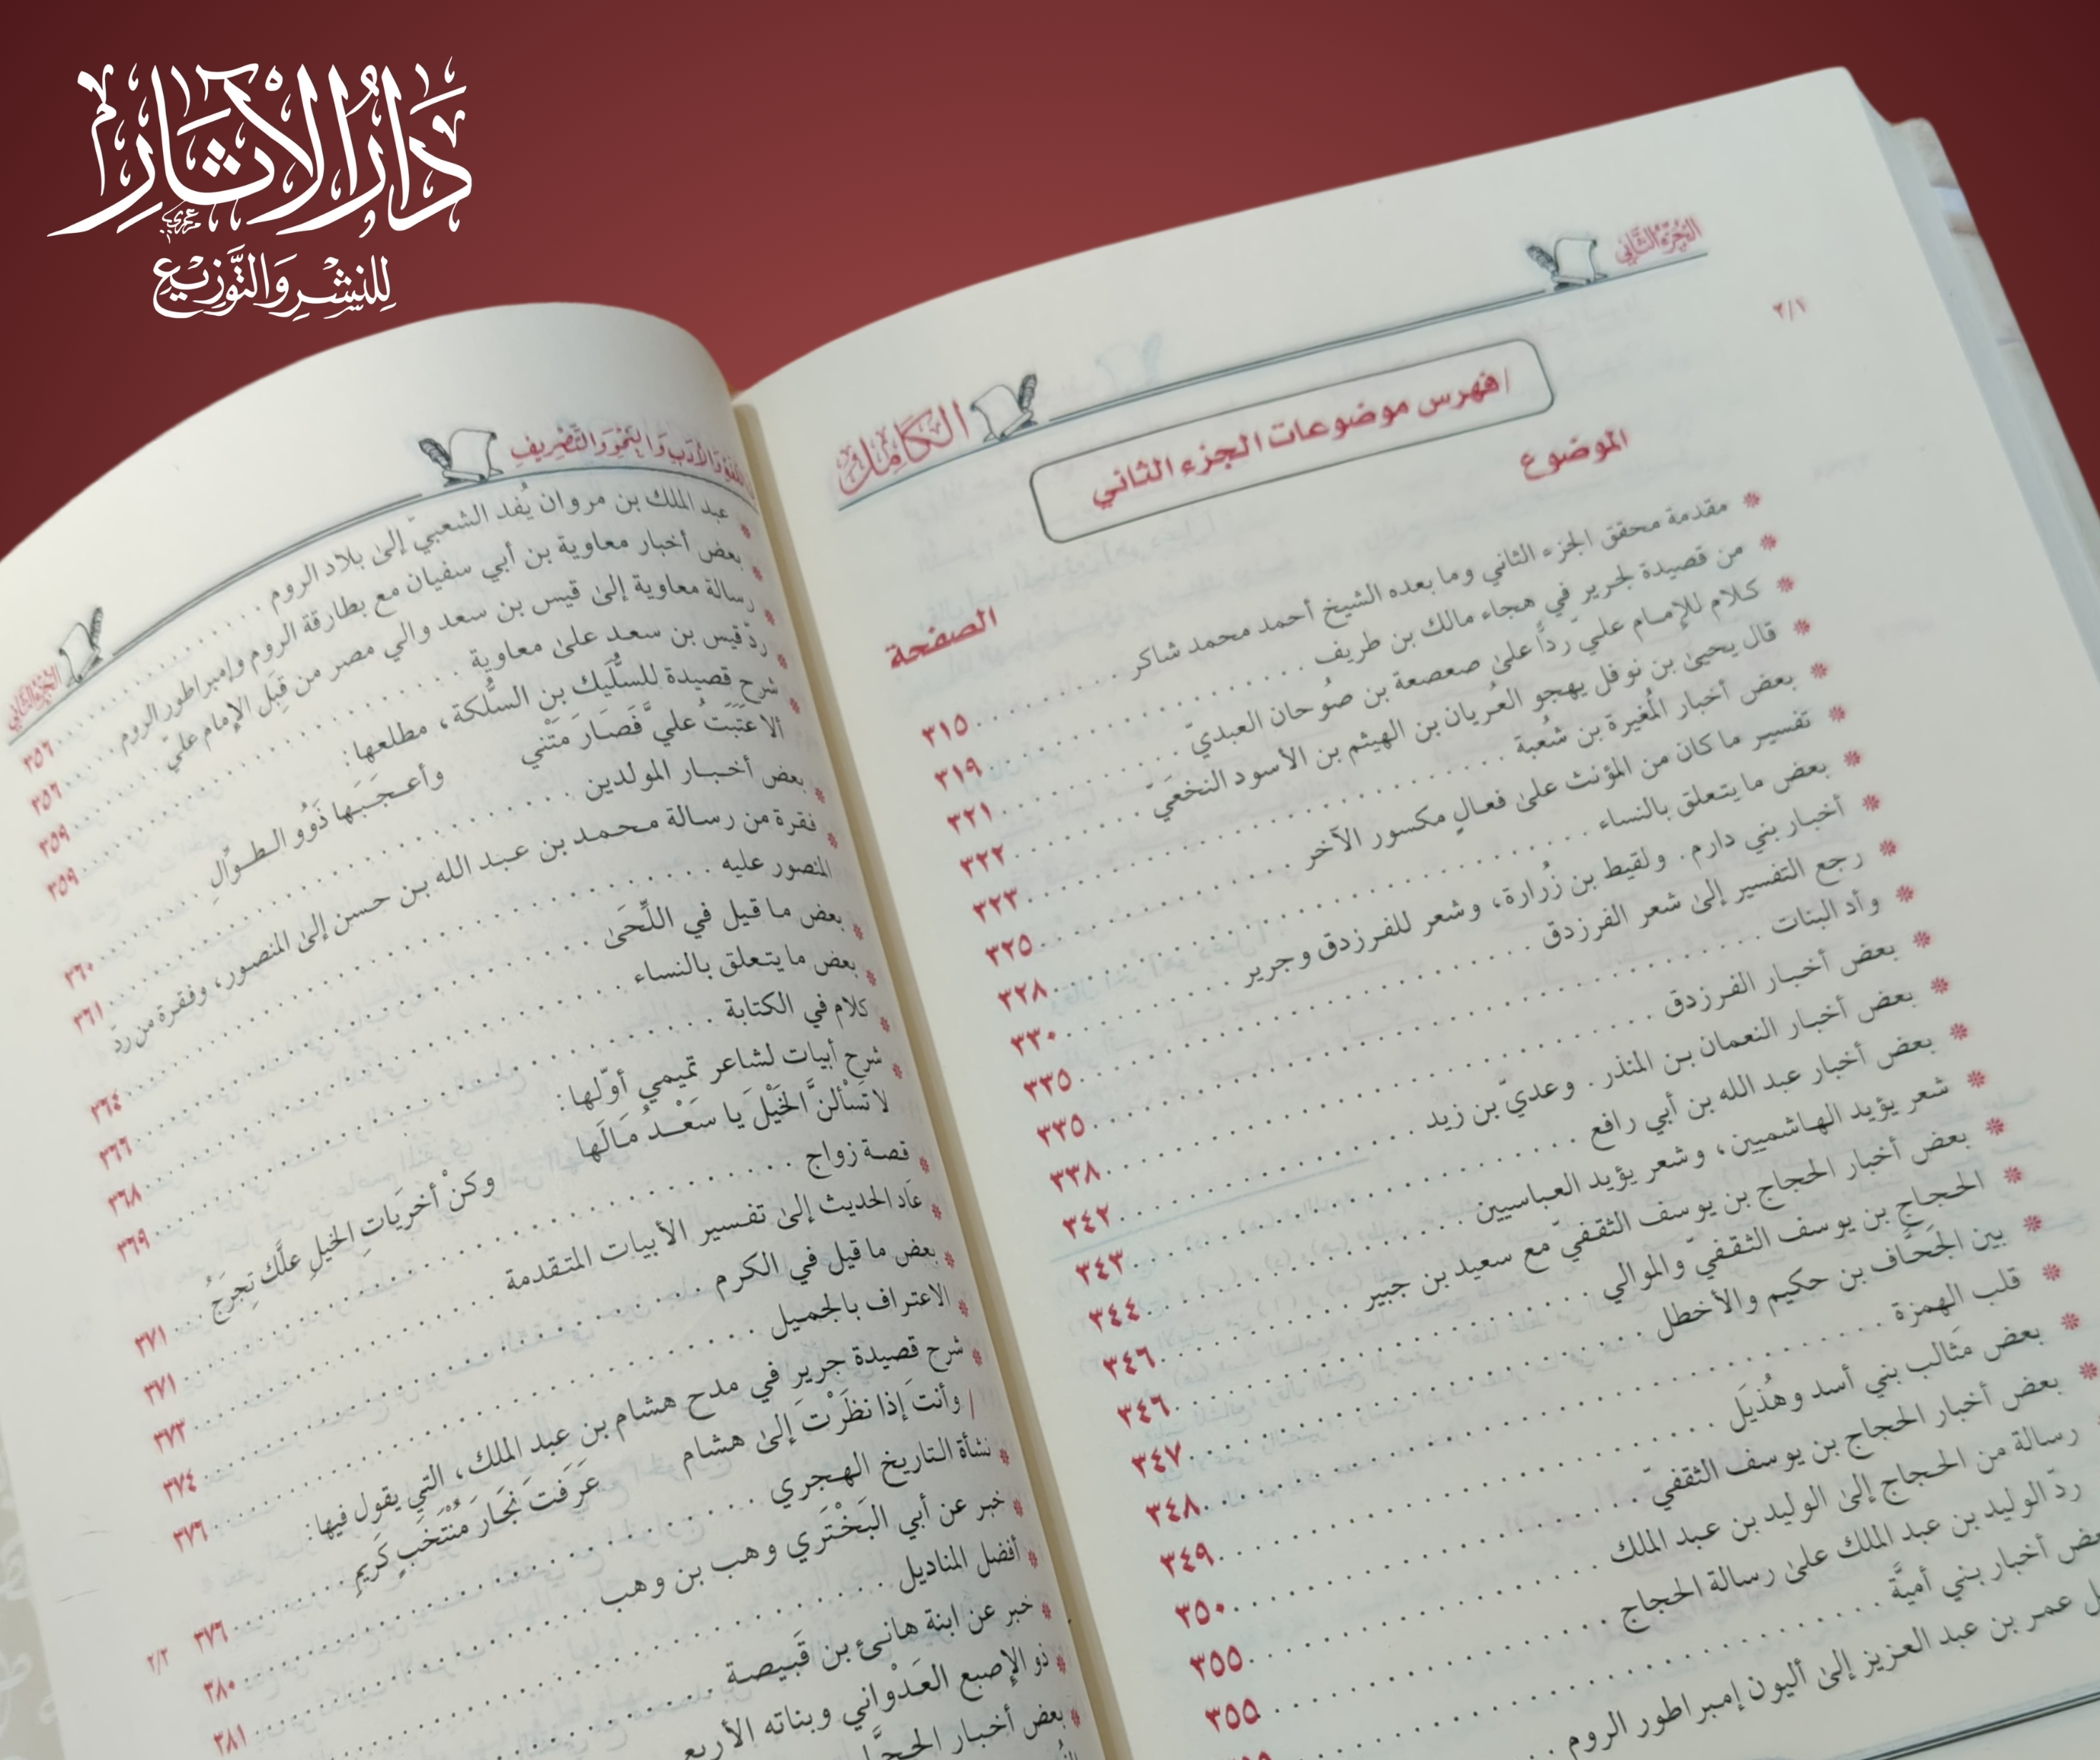 دَارُ الآثَارِ
لِلنَّشْرِ وَالتَّوْزِيْعِ
الجُزْءُ الثَّانِي
الكَامِل
٢/١
/ فهرس موضوعات الجزء الثاني
الموضوع
الصفحة
* مقدمة محقق الجزء الثاني وما بعده الشيخ أحمد محمد شاكر ........ ٣١٥
* من قصيدة لجرير في هجاء مالك بن طريف ........ ٣١٩
* كلام للإمام عليّ ردًّا على صعصعة بن صُوحان العبديّ ........ ٣٢١
* قال يحيىٰ بن نوفل يهجو العُريان بن الهيثم بن الأسود النخعَيّ ........ ٣٢٢
* بعض أخبار المُغيرة بن شُعبة ........ ٣٢٣
* تفسير ما كان من المؤنث علىٰ فعالِ مكسور الآخر ........ ٣٢٥
* بعض ما يتعلق بالنساء ........ ٣٢٨
* أخبار بني دارم. ولقيط بن زُرارة، وشعر للفرزدق وجرير ........ ٣٣٠
* رجع التفسير إلىٰ شعر الفرزدق ........ ٣٣٥
* وأد البنات ........ ٣٣٥
* بعض أخبار الفرزدق ........ ٣٣٨
* بعض أخبار النعمان بن المنذر. وعديّ بن زيد ........ ٣٤٢
* بعض أخبار عبد الله بن أبي رافع ........ ٣٤٣
* شعر يؤيد الهاشميين، وشعر يؤيد العباسيين ........ ٣٤٤
* بعض أخبار الحجاج بن يوسف الثقفيّ مع سعيد بن جبير ........ ٣٤٦
* الحجاج بن يوسف الثقفيّ والموالي ........ ٣٤٦
* بين الجَحَّاف بن حكيم والأخطل ........ ٣٤٧
* قلب الهمزة ........ ٣٤٨
* بعض مَثالب بني أسد وهُذيَل ........ ٣٤٩
* بعض أخبار الحجاج بن يوسف الثقفيّ ........ ٣٥٠
رسالة من الحجاج إلىٰ الوليد بن عبد الملك ........ ٣٥٥
ردّ الوليد بن عبد الملك علىٰ رسالة الحجاج ........ ٣٥٥
أخبار بني أميَّة ........
عمر بن عبد العزيز إلىٰ أليون إمبراطور الروم ........
وَالأَدَبِ وَالنَّحْوِ وَالتَّصْرِيفِ
الجُزْءُ الثَّانِي
* عبد الملك بن مروان يُفد الشعبيّ إلىٰ بلاد الروم ........ ٣٥٦
* بعض أخبار معاوية بن أبي سفيان مع بطارقة الروم وإمبراطور الروم ........ ٣٥٦
* رسالة معاوية إلىٰ قيس بن سعد والي مصر من قِبَل الإمام عليّ ........ ٣٥٩
* ردّ قيس بن سعد علىٰ معاوية ........ ٣٥٩
* شرح قصيدة للسُّلَيك بن السُّلَكة، مطلعها:
ألا عَتَبَتْ عليَّ فَصَارَ مَتْني وأعـجَـبَـها ذَوُو الـطـوالِ ........ ٣٦٠
* بعض أخـبـار المولدين ........ ٣٦١
* فقرة من رسالة محمد بن عبد الله بن حسن إلىٰ المنصور، وفقرة من ردّ
المنصور عليه ........ ٣٦٤
* بعض ما قيل في اللِّحَىٰ ........ ٣٦٦
* بعض ما يتعلق بالنساء ........ ٣٦٨
* كلام في الكتابة ........ ٣٦٩
* شرح أبيات لشاعر تميمي أوّلها:
لا تَسْألنَّ الخَيْلَ يا سَعْـدُ مَـالَها وكنْ أخرَياتِ الخيلِ علَّك تجرَحُ ........ ٣٧١
* قصة زواج ........ ٣٧١
* عاد الحديث إلىٰ تفسير الأبيات المتقدمة ........ ٣٧٣
* بعض ما قيل في الكرم ........ ٣٧٤
* الاعتراف بالجميل ........ ٣٧٦
* شرح قصيدة جرير في مدح هشام بن عبد الملك، التي يقول فيها:
/ وأنتَ إذا نظَرْتَ إلىٰ هشام عَرَفتَ نِجَارَ مُنْتَخَبٍ كَريمِ ........ ٣٧٦
٢/٢
* نشأة التاريخ الهجري ........ ٣٨٠
* خبر عن أبي البَخْتَري وهب بن وهب ........ ٣٨١
* أفضل المناديل ........
* خبر عن ابنة هانئ بن قَبيصة ........
* ذو الإصبع العَدْواني وبناته الأربع
* بعض أخبار